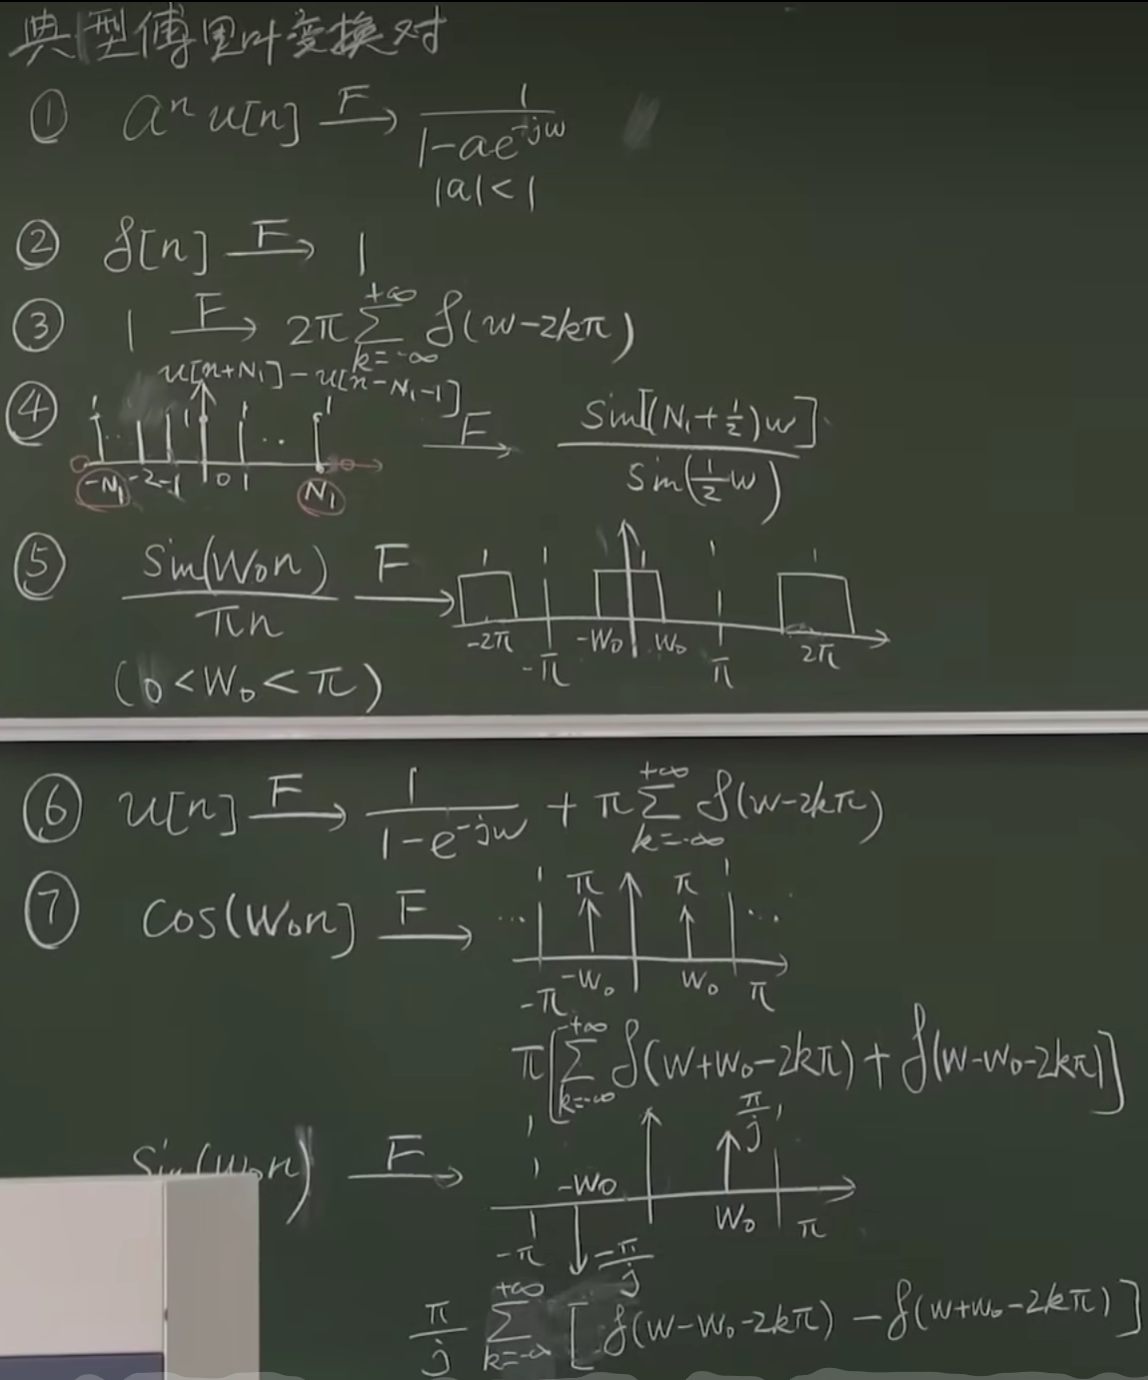 典型傅里叶变换对
① aⁿ u[n] —F→ 1/(1-ae^{-jw})
|a|<1
② δ[n] —F→ 1
③ 1 —F→ 2π Σ_{k=-∞}^{+∞} δ(w-2kπ)
u[n+N₁]-u[n-N₁-1]
④ —F→ sin[(N₁+1/2)w] / sin(1/2 w)
1 1 1 1
-N₁ -2 -1 0 1 N₁
⑤ sin(w₀n)/(πn) —F→
1 1 1
-2π -π -w₀ w₀ π 2π
(0<w₀<π)
⑥ u[n] —F→ 1/(1-e^{-jw}) + π Σ_{k=-∞}^{+∞} δ(w-2kπ)
⑦ cos(w₀n] —F→
... π π ...
-π -w₀ w₀ π
π[Σ_{k=-∞}^{+∞} δ(w+w₀-2kπ)+δ(w-w₀-2kπ)]
sin(w₀n) —F→
π/j
-w₀ w₀
-π -π/j π
π/j Σ_{k=-∞}^{+∞} [δ(w-w₀-2kπ)-δ(w+w₀-2kπ)]